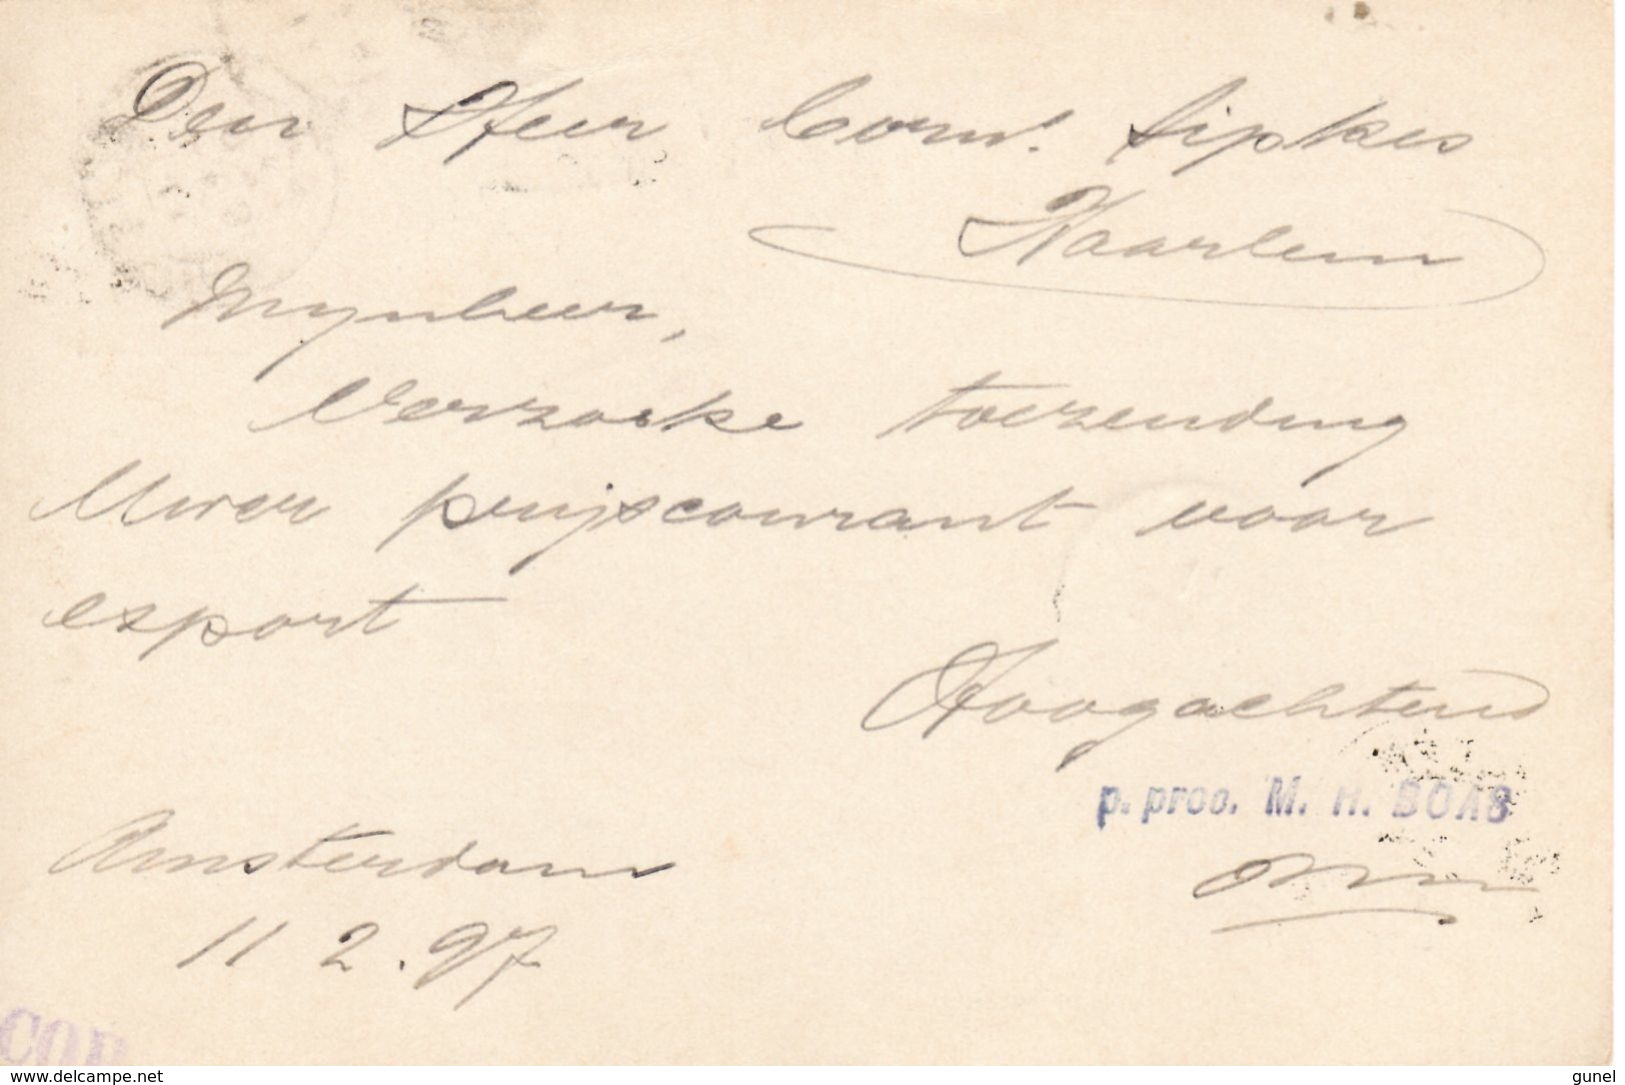 Den Heer Corns. Sipkes
Haarlem
Mynheer,
Verzoeke toezending
Uwer prijscourant voor
export
Hoogachtend
p. proc. M. H. BOAS
Amsterdam
11 2. 97
COR
www.delcampe.net
gunel